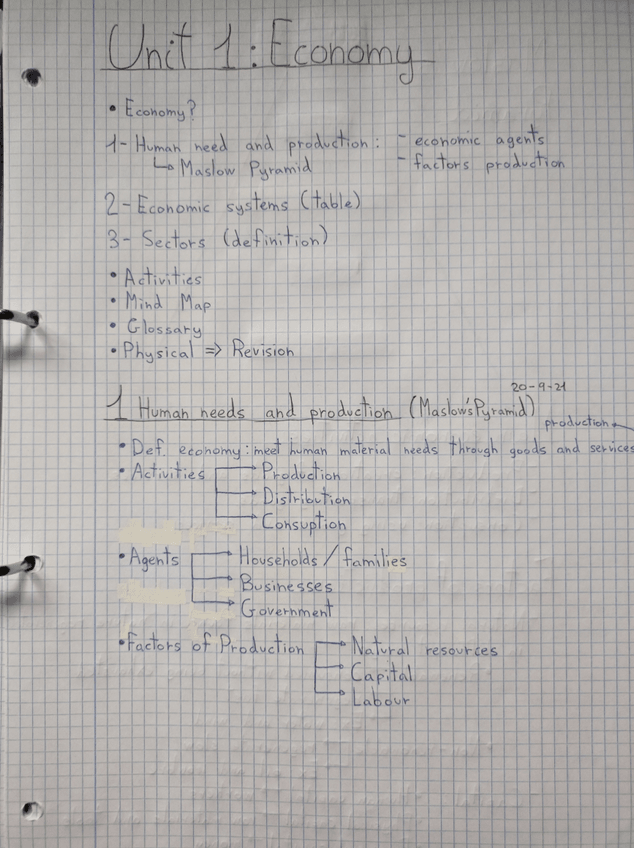 Unit 1: Economy
• Economy?
1- Human need and production: - economic agents
↳ Maslow Pyramid - factors production
2- Economic systems (table)
3- Sectors (definition)
• Activities
• Mind Map
• Glossary
• Physical => Revision
20-9-21
1 Human needs and production (Maslow's Pyramid)
production
• Def. economy: meet human material needs through goods and services
• Activities → Production
→ Distribution
→ Consuption
• Agents → Households / families
→ Businesses
→ Government
• Factors of Production → Natural resources
→ Capital
→ Labour